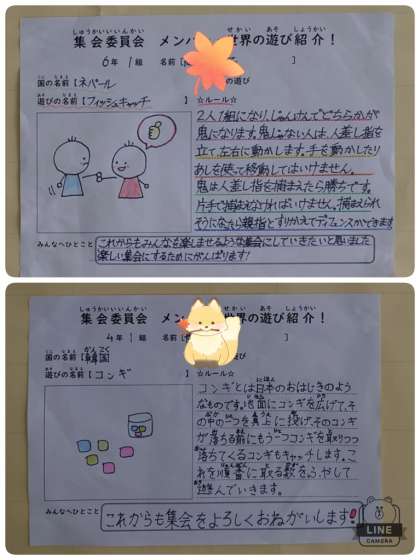 しゅうかいいいんかい せかい あそ しょうかい
集会委員会 メンバ 世界の遊び紹介!
6年1組 名前【 の遊び
くに なまえ
国の名前【ネパール
あそ なまえ
遊びの名前【フィッシュキャッチ 】
☆ルール☆
2人1組になり、じゃんけんでどちらかが
鬼になります。鬼じゃない人は、人差し指を
立て、左右に動かします。手を動かしたり
あしを使って移動してはいけません。
鬼は人差し指を捕まえたら勝ちです。
片手で捕まえなければいけません。捕まえられ
そうになったら親指とすりかえてディフェンスができます
みんなへひとこと
これからもみんなを楽しませるような集会にしていきたいと思いました
楽しい集会にするためにがんばります!
しゅうかいいいんかい せかい あそ しょうかい
集会委員会 メン 世界の遊び紹介!
4年1組 名前【 び
くに なまえ かんこく
国の名前【韓国
あそ なまえ
遊びの名前【コンギ 】
☆ルール☆
コンギとは日本のおはじきのよう
なものです。地面にコンギを広げて、そ
の中の一つを真上に投げ、そのコンギ
が落ちる前にもう一つコンギを取りつつ
落ちてくるコンギもキャッチします。こ
れを順番に取る数をふやして
遊んでいきます。
みんなへひとこと
これからも集会をよろしくおねがいします!
LINE
CAMERA